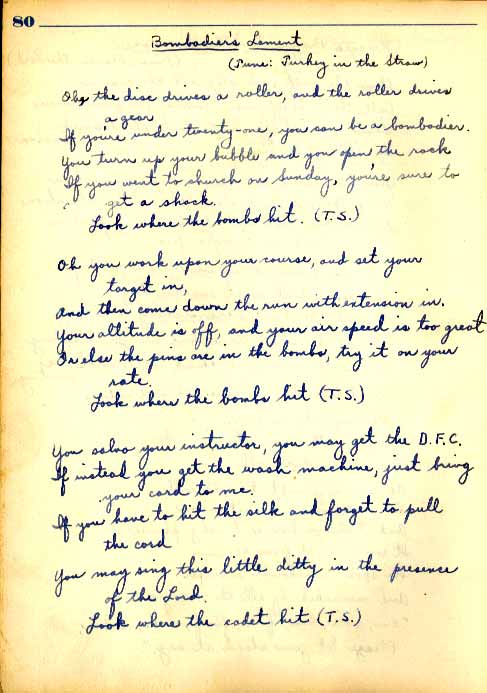 80
Bombadier's Lament
(Tune: Turkey in the Straw)
Oh, the disc drives a roller, and the roller drives
a gear
If you're under twenty-one, you can be a bombadier.
You turn up your bubble and you open the rack
If you went to church on Sunday, you're sure to
get a shack.
Look where the bombs hit. (T.S.)
Oh you work upon your course, and set your
target in,
And then come down the run with extension in.
Your altitude is off, and your air speed is too great
Or else the pins are in the bombs, try it on your
rate.
Look where the bombs hit (T.S.)
You salvo your instructor, you may get the D.F.C.
If instead you get the wash machine, just bring
your card to me.
If you have to hit the silk and forget to pull
the cord
You may sing this little ditty in the presence
of the Lord.
Look where the cadet hit (T.S.)